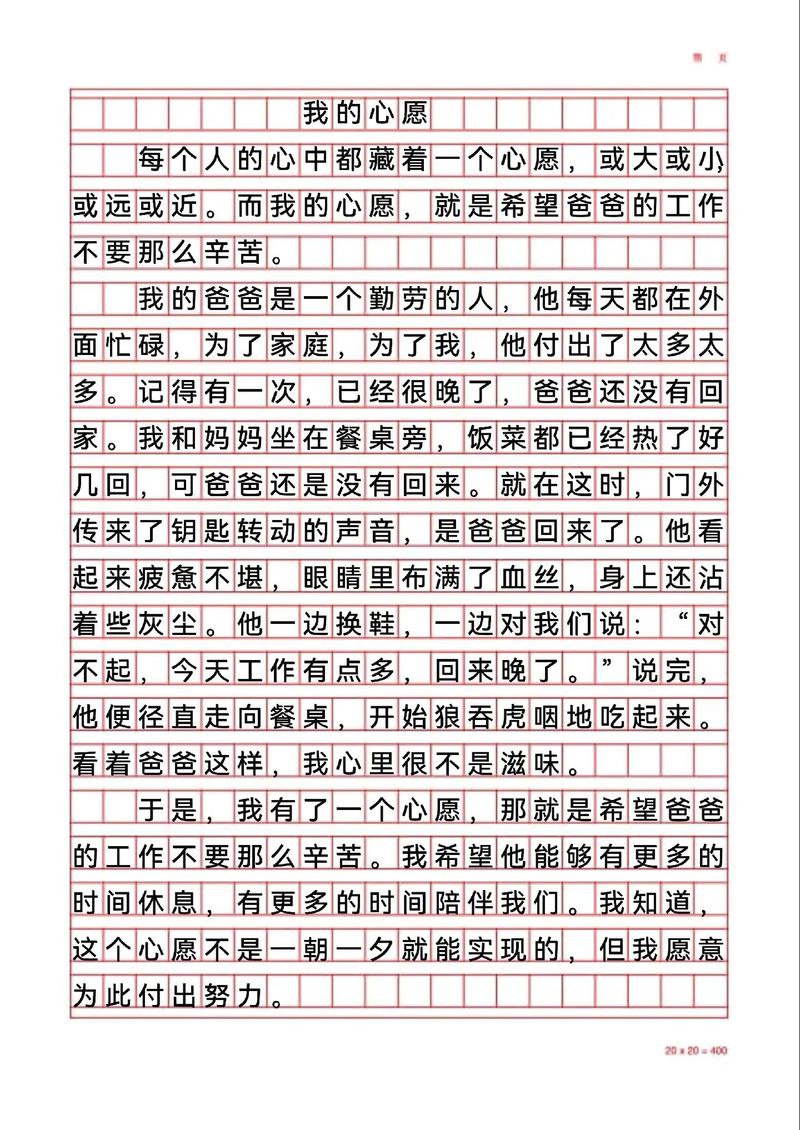 第 页
我的心愿
每个人的心中都藏着一个心愿，或大或小，
或远或近。而我的心愿，就是希望爸爸的工作
不要那么辛苦。
我的爸爸是一个勤劳的人，他每天都在外
面忙碌，为了家庭，为了我，他付出了太多太
多。记得有一次，已经很晚了，爸爸还没有回
家。我和妈妈坐在餐桌旁，饭菜都已经热了好
几回，可爸爸还是没有回来。就在这时，门外
传来了钥匙转动的声音，是爸爸回来了。他看
起来疲惫不堪，眼睛里布满了血丝，身上还沾
着些灰尘。他一边换鞋，一边对我们说：“对
不起，今天工作有点多，回来晚了。”说完，
他便径直走向餐桌，开始狼吞虎咽地吃起来。
看着爸爸这样，我心里很不是滋味。
于是，我有了一个心愿，那就是希望爸爸
的工作不要那么辛苦。我希望他能够有更多的
时间休息，有更多的时间陪伴我们。我知道，
这个心愿不是一朝一夕就能实现的，但我愿意
为此付出努力。
20 x 20 = 400